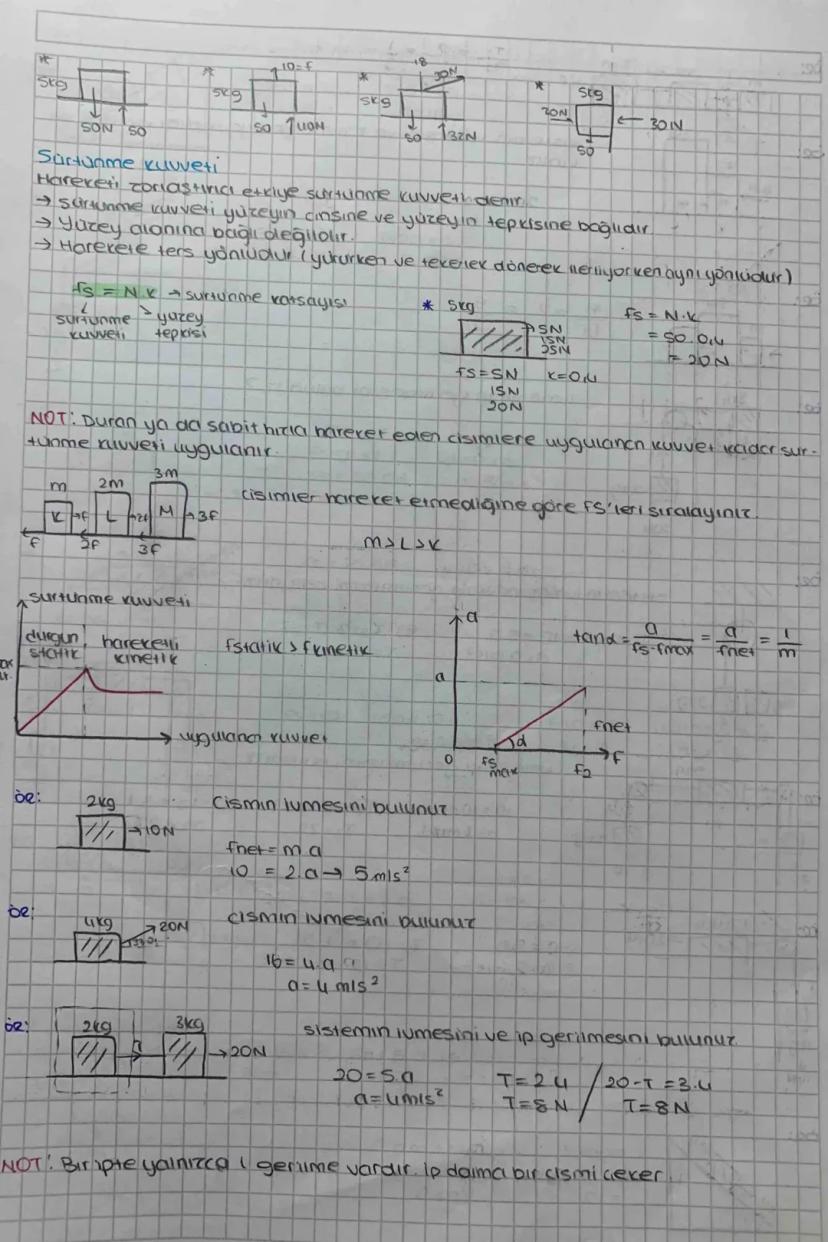 * 5kg
50N 50
* 10=f
5kg
50 40N
* 18
30N
5kg
50 32N
* 5kg
20N 30N
50
Sürtünme kuvveti
Hareketi zorlaştırıcı etkiye sürtünme kuvveti denir.
→ sürtünme kuvveti yüzeyin cinsine ve yüzeyin tepkisine bağlıdır
→ Yüzey alanına bağlı değildir.
→ Harekete ters yönlüdür (yürürken ve tekerlek dönerek ilerliyorken aynı yönlüdür)
fs = N.k → sürtünme katsayısı
sürtünme kuvveti
yüzey tepkisi
* 5kg
5N
15N
25N
fs=5N k=0,4
15N
20N
fs = N.k
= 50.0,4
= 20N
NOT: Duran ya da sabit hızla hareket eden cisimlere uygulanan kuvvet kadar sür-
tünme kuvveti uygulanır.
m 2m 3m
K f L 2f M 3f
f 2f 3f
cisimler hareket etmediğine göre fs'leri sıralayınız.
M>L>K
sürtünme kuvveti
durgun statik
hareketli kinetik
fstatik > fkinetik
uygulanan kuvvet
a
a
0 fs max f2 f
α
fnet
tanα = a/fs-fmax = a/fnet = 1/m
ör: 2kg
10N
cismin ivmesini bulunuz
fnet = m.a
10 = 2.a → 5 m/s²
ör: 4kg
20N
cismin ivmesini bulunuz
16 = 4.a
a = 4 m/s²
ör: 2kg 3kg
20N
sistemin ivmesini ve ip gerilmesini bulunuz.
20 = 5.a
a = 4m/s²
T = 2.4 / 20-T = 3.4
T = 8N / T = 8N
NOT: Bir ipte yalnızca 1 gerilme vardır. İp daima bir cismi çeker.